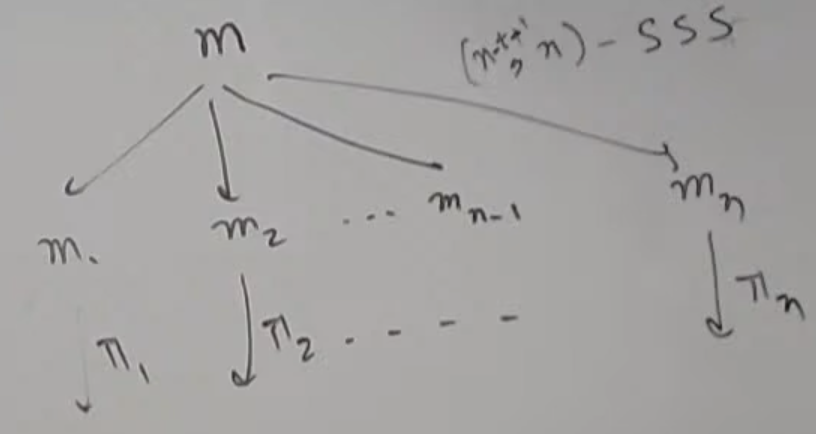 m (n-t+1, n) - SSS
m₁ m₂ ... mₙ₋₁ mₙ
π₁ π₂ . - - - πₙ